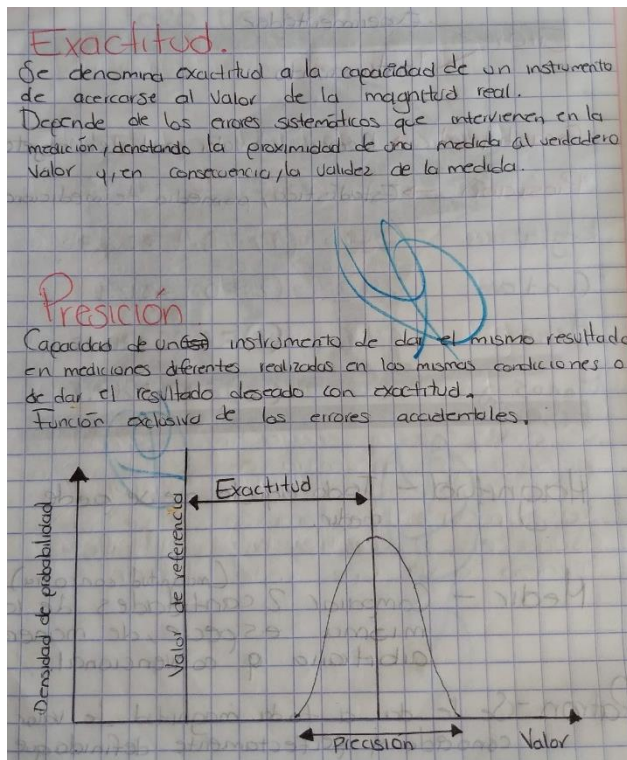 Exactitud.
Se denomina exactitud a la capacidad de un instrumento
de acercarse al valor de la magnitud real.
Depende de los errores sistemáticos que intervienen en la
medición, denotando la proximidad de una medida al verdadero
Valor y, en consecuencia, la validez de la medida.
Presición
Capacidad de un instrumento de dar el mismo resultado
en mediciones diferentes realizadas en las mismas condiciones o
de dar el resultado deseado con exactitud.
Función exclusiva de los errores accidentables.
Exactitud
Densidad de probabilidad
Valor de referencia
Precisión
Valor